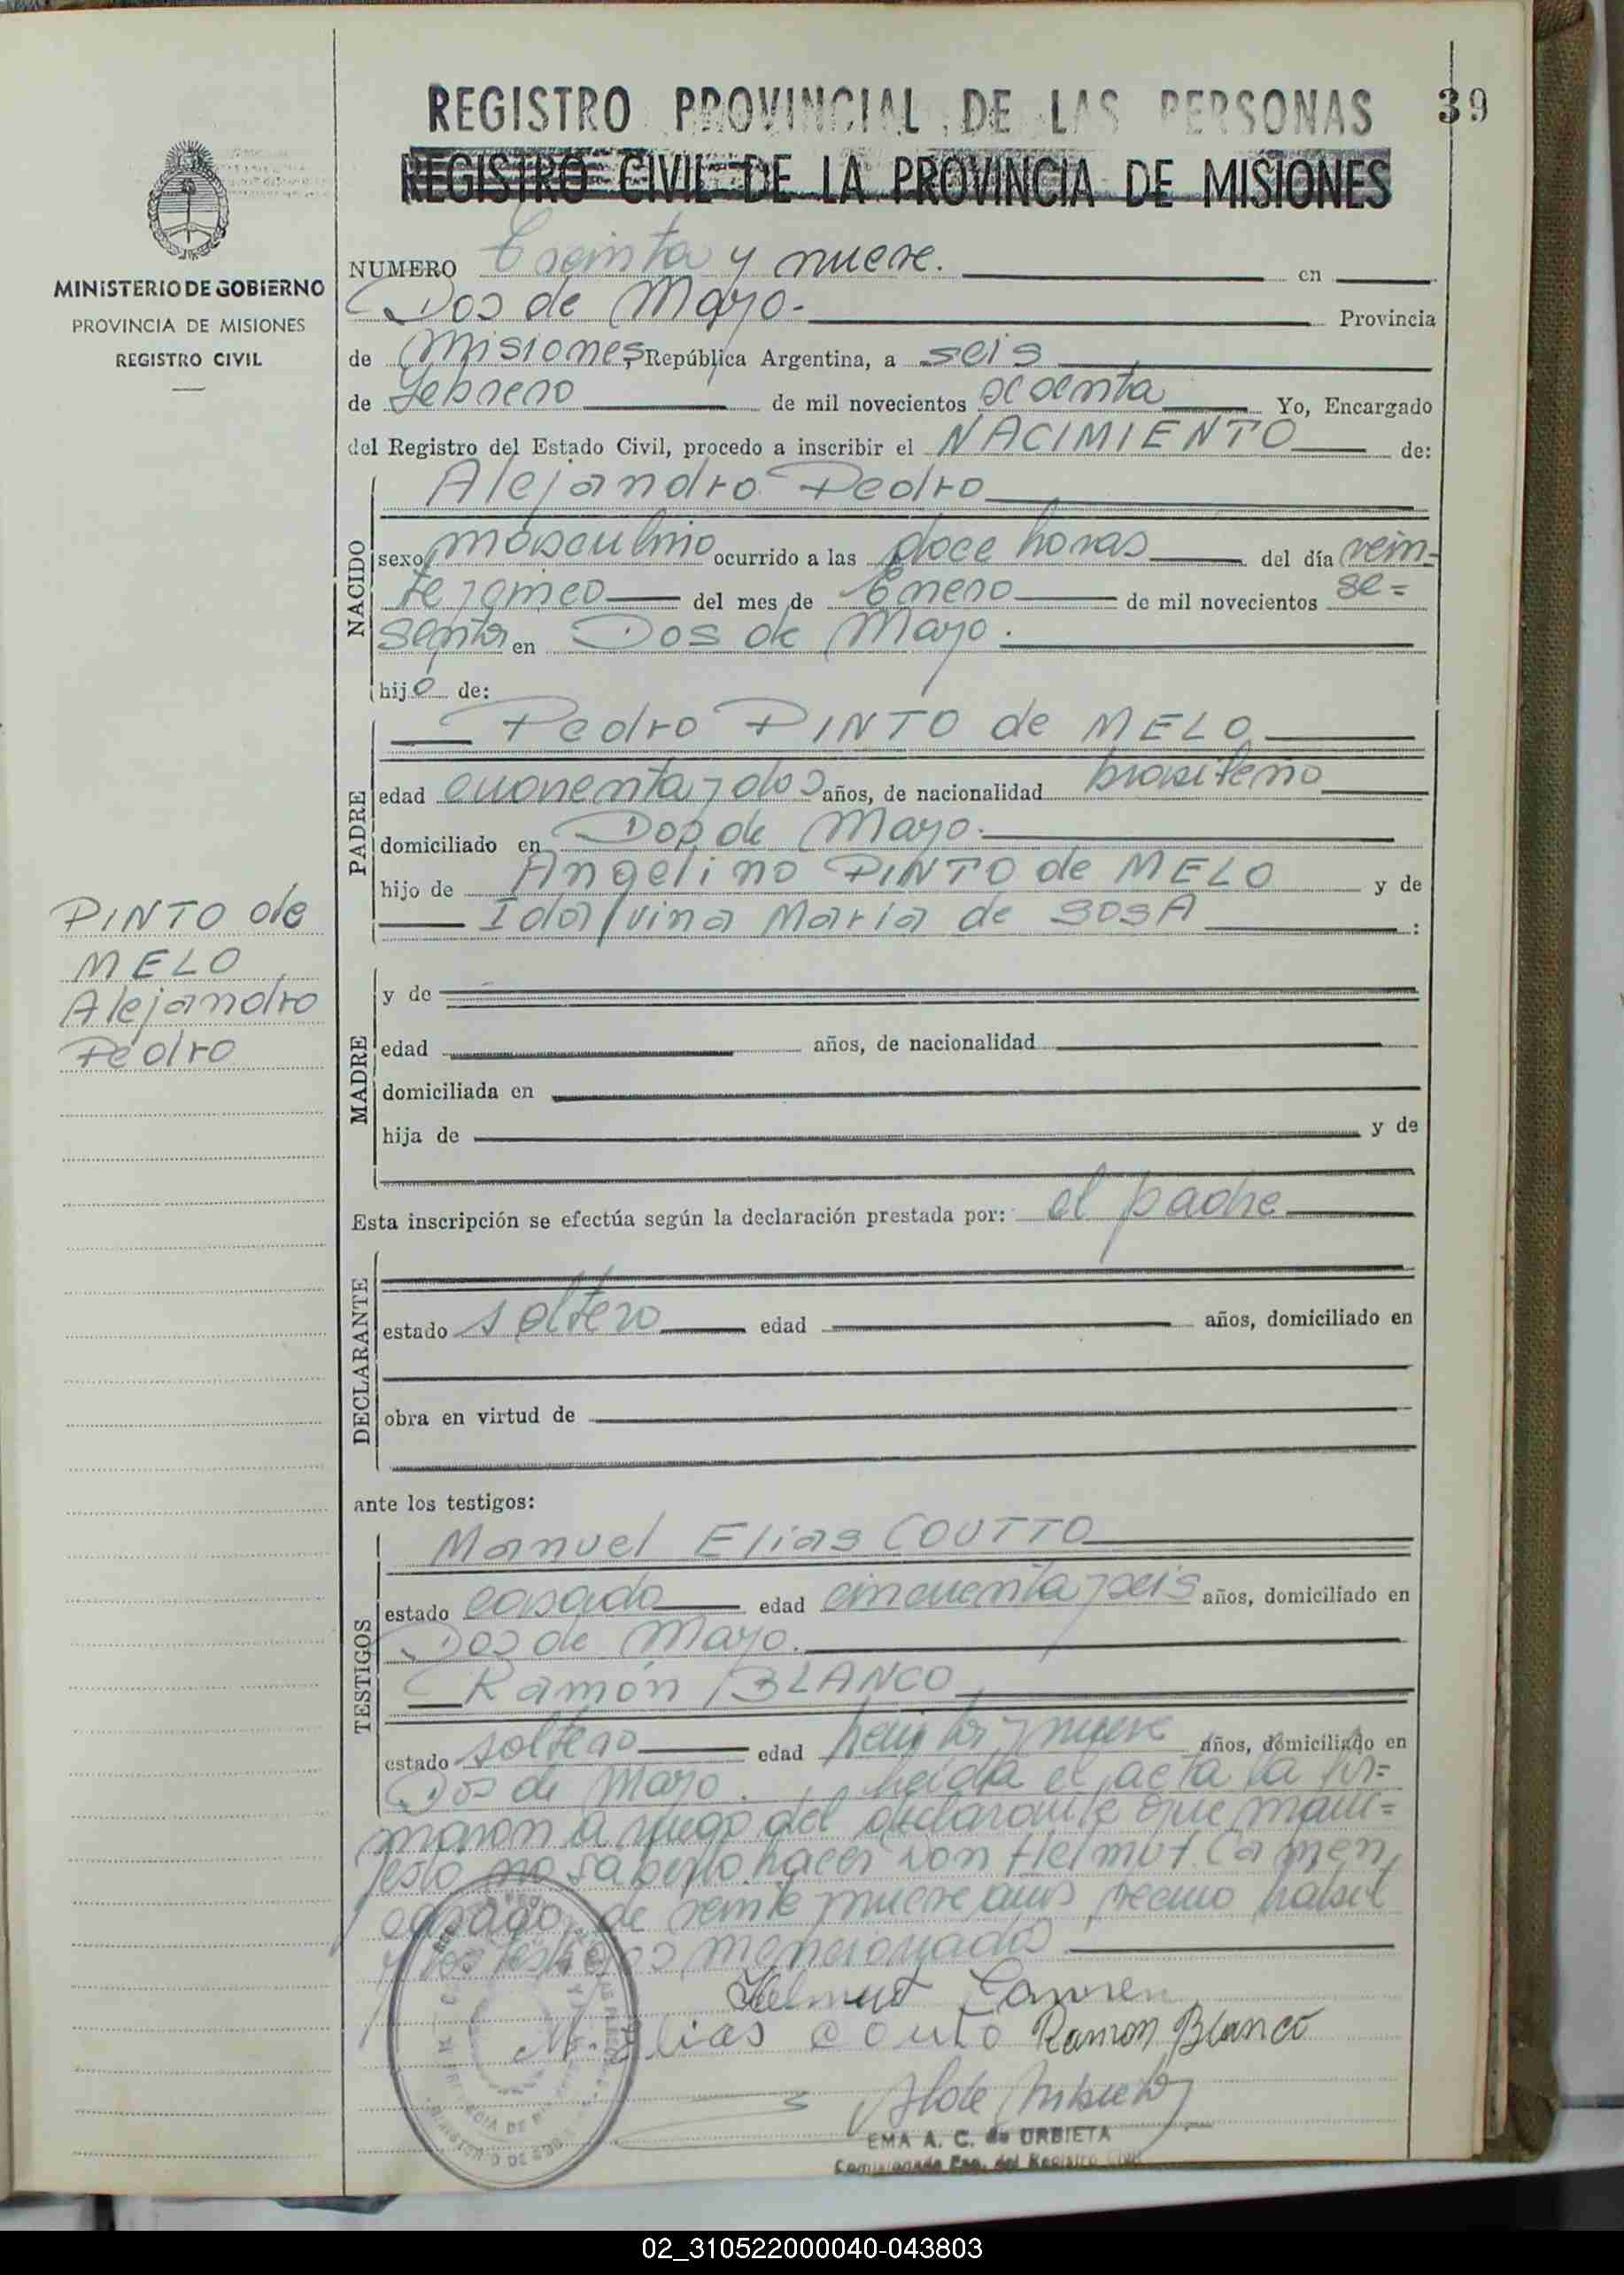 REGISTRO PROVINCIAL DE LAS PERSONAS
39
REGISTRO CIVIL DE LA PROVINCIA DE MISIONES
MINISTERIO DE GOBIERNO
PROVINCIA DE MISIONES
REGISTRO CIVIL
NUMERO Treinta y nueve. en
Dos de Mayo. Provincia
de Misiones, República Argentina, a seis
de Febrero de mil novecientos ochenta Yo, Encargado
del Registro del Estado Civil, procedo a inscribir el NACIMIENTO de:
NACIDO
Alejandro Pedro
sexo masculino ocurrido a las doce horas del día vein-
te y cinco del mes de Enero de mil novecientos se=
senta en Dos de Mayo.
hijo de:
PADRE
Pedro PINTO de MELO
edad cuarenta y dos años, de nacionalidad brasileño
domiciliado en Dos de Mayo.
hijo de Angelino PINTO de MELO y de
Idalvina Maria de SOSA :
PINTO de
MELO
Alejandro
Pedro
MADRE
y de
edad años, de nacionalidad
domiciliada en
hija de y de
Esta inscripción se efectúa según la declaración prestada por: el padre
DECLARANTE
estado soltero edad años, domiciliado en
obra en virtud de
ante los testigos:
TESTIGOS
Manuel Elias COUTTO
estado casado edad cincuenta y seis años, domiciliado en
Dos de Mayo.
Ramón BLANCO
estado soltero edad y nueve años, domiciliado en
Dos de Mayo. Leída el acta la fir=
maron a ruego del declarante que mani=
festó no saberlo hacer don Helmut Camen,
casado, de veinte nueve años vecino habil
y los testigos mencionado
Helmut
M. Elias Couto Ramon Blanco
EMA A. C. de URBIETA
Comisionada Enc. del Registro Civil
02_310522000040-043803